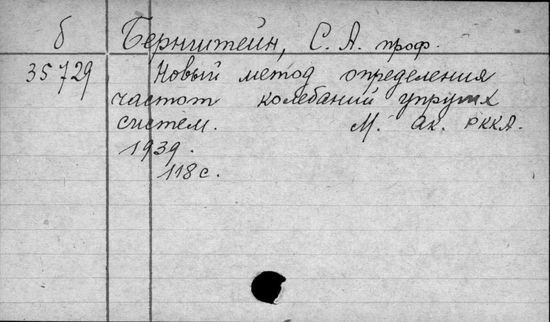 б Бернштейн, С. А. проф.
35729 Новый метод определения
частот колебаний упругих
систем. М. Ак. РККА.
1939.
118 с.